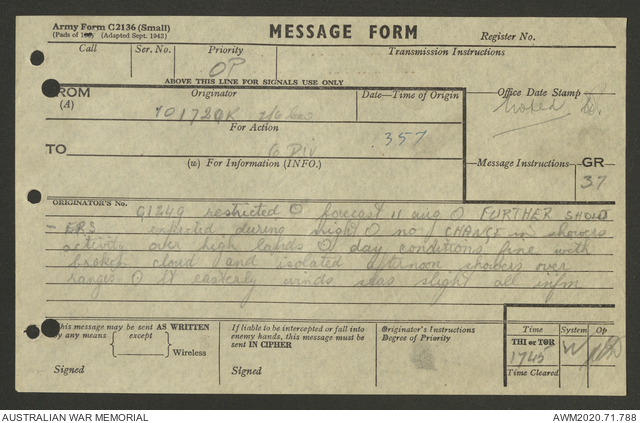 Army Form C2136 (Small)
(Pads of 100) (Adapted Sept. 1943)
MESSAGE FORM
Register No.
Call
Ser. No.
Priority
Transmission Instructions
OP
ABOVE THIS LINE FOR SIGNALS USE ONLY
FROM
(A)
Originator
Date—Time of Origin
Office Date Stamp
Noted
101720K
For Action
357
TO
6 Div
(W) For Information (INFO.)
Message Instructions
GR
37
ORIGINATOR'S No.
G1249 restricted O forecast 11 aug O FURTHER SHOW
- ERS expected during night O no CHANGE in showers
activity over high lands O day conditions fine with
broken cloud and isolated afternoon showers over
ranges O lt easterly winds seas slight all infm
This message may be sent AS WRITTEN
by any means
except
Wireless
Signed
If liable to be intercepted or fall into
enemy hands, this message must be
sent IN CIPHER
Signed
Originator's Instructions
Degree of Priority
Time
System
Op
THI or TOR
1745
W
Time Cleared
AUSTRALIAN WAR MEMORIAL
AWM2020.71.788